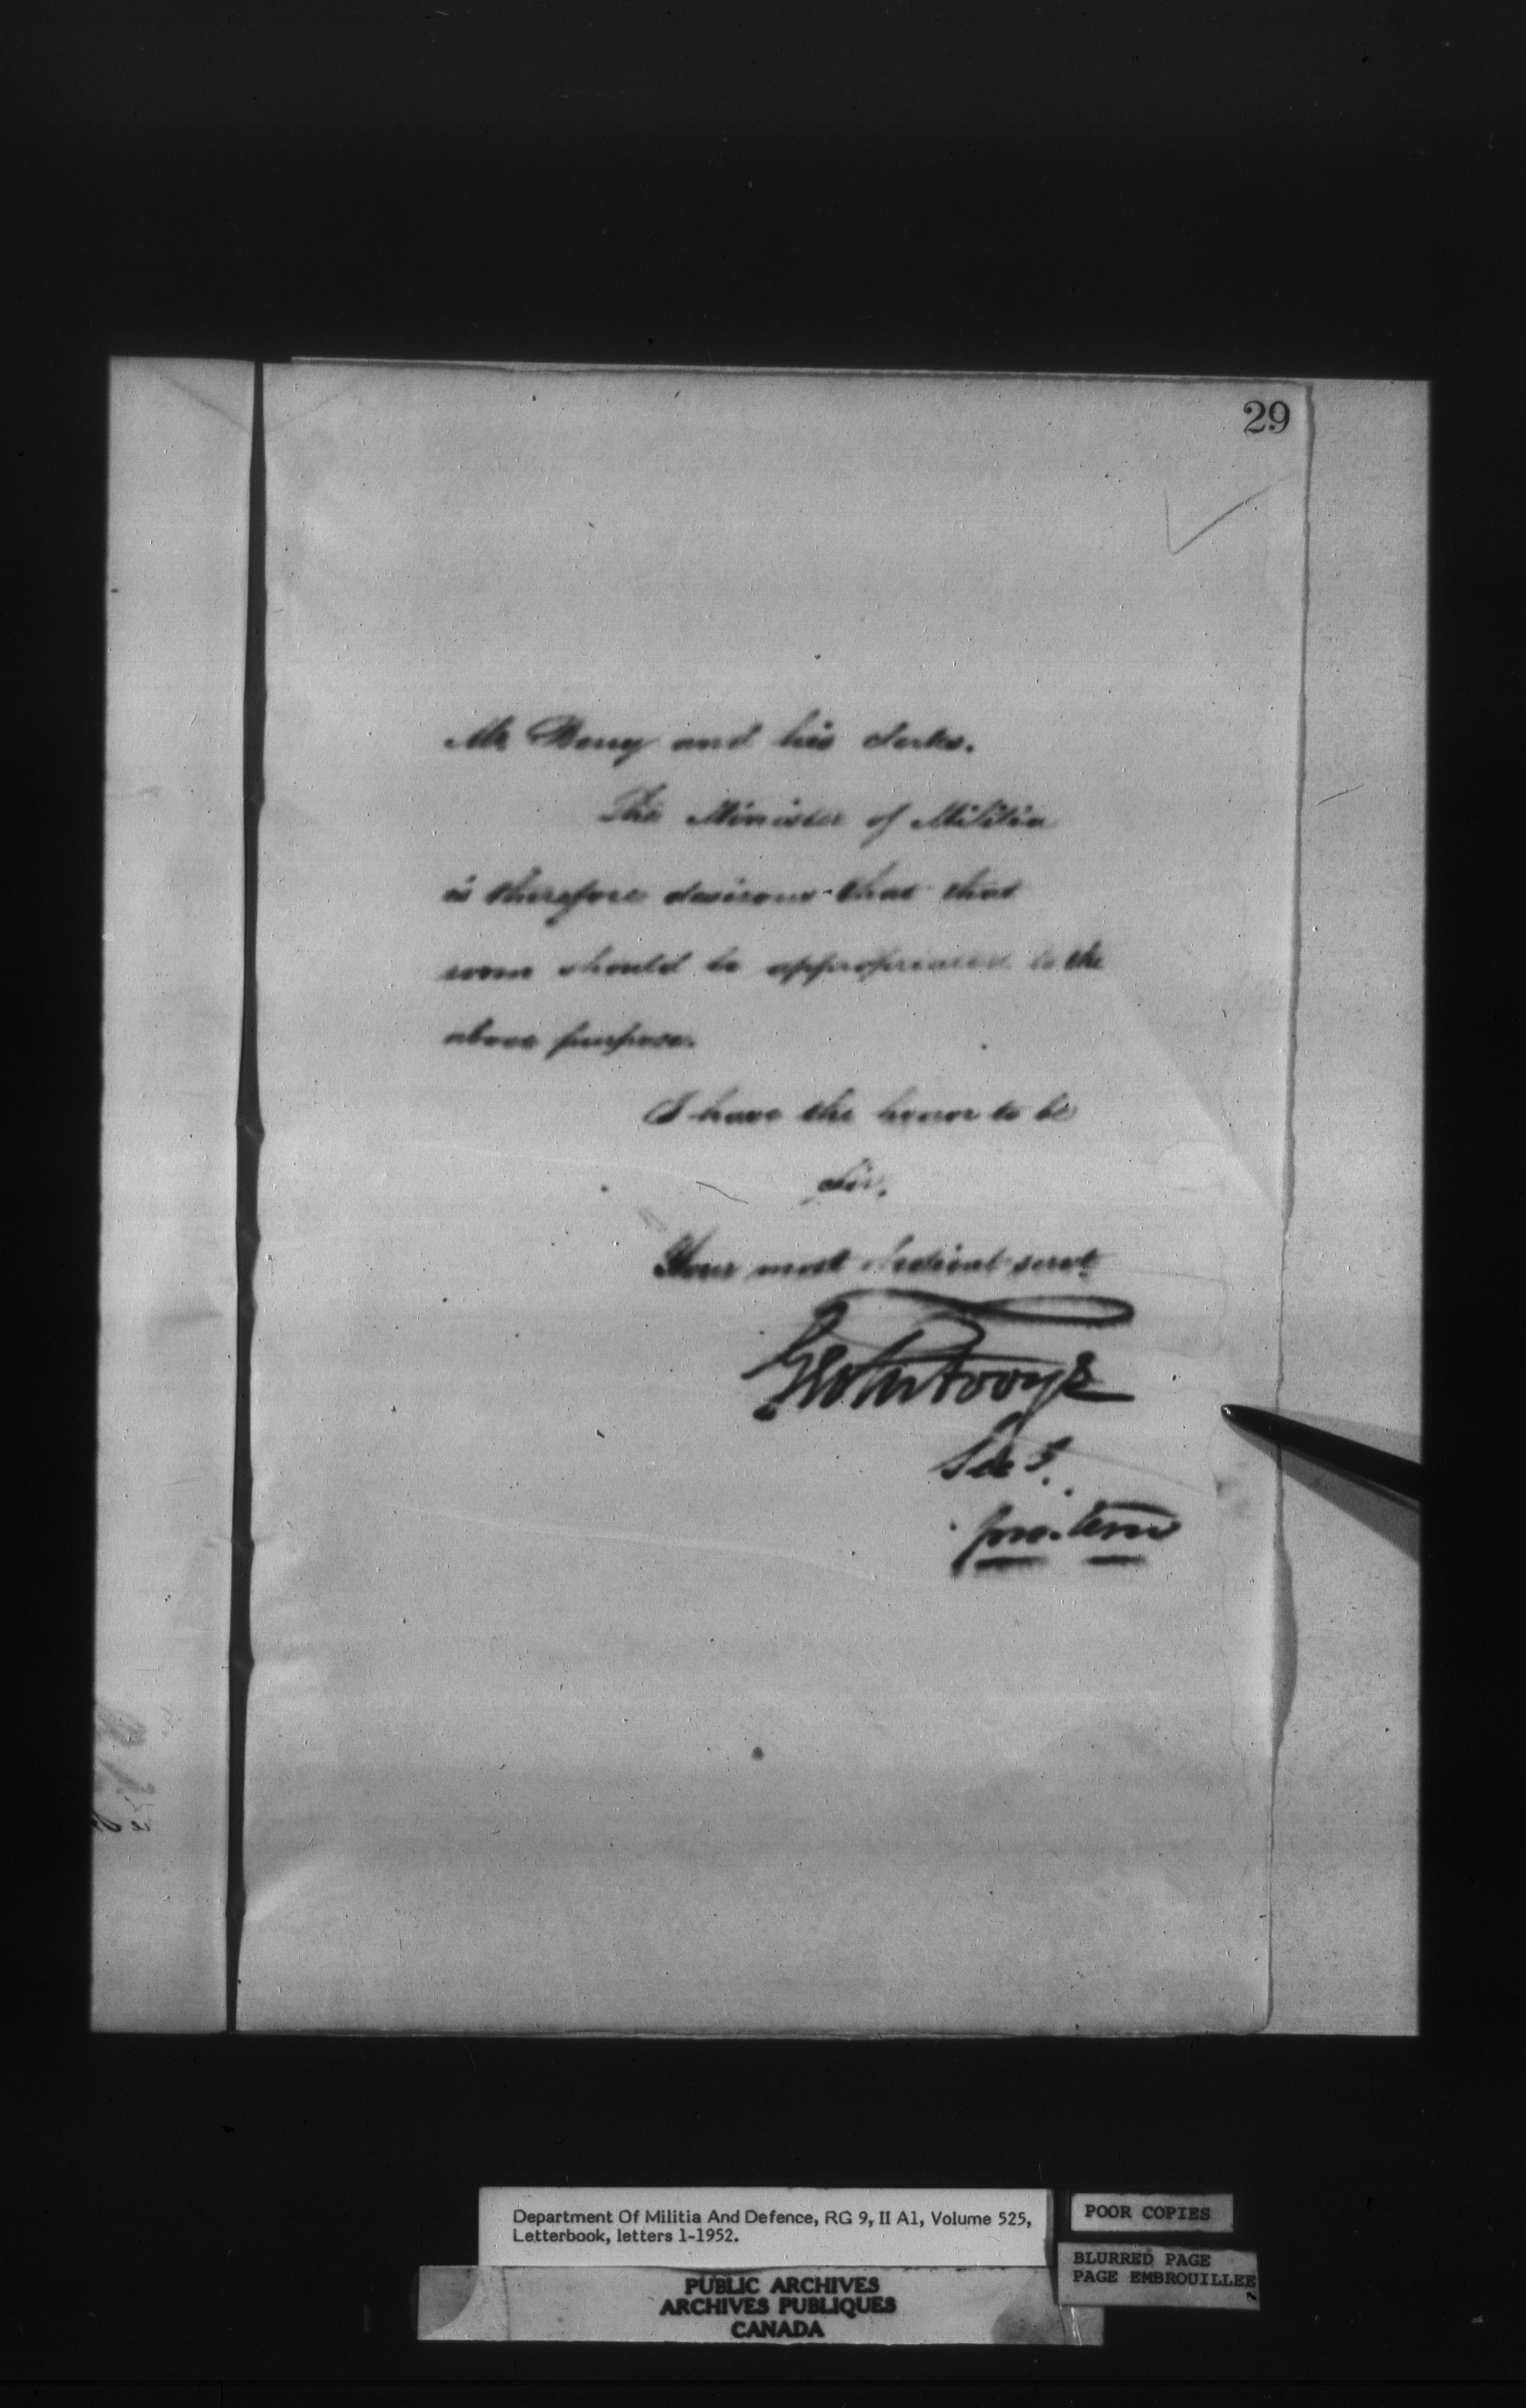 29
Mr Berry and his clerks.
The Minister of Militia
is therefore desirous that that
room should be appropriated to the
above purpose.
I have the honor to be
Sir,
Your most obedient servt
Secy.
pro. tem
Department Of Militia And Defence, RG 9, II A1, Volume 525,
Letterbook, letters 1-1952.
POOR COPIES
BLURRED PAGE
PAGE EMBROUILLEE
PUBLIC ARCHIVES
ARCHIVES PUBLIQUES
CANADA